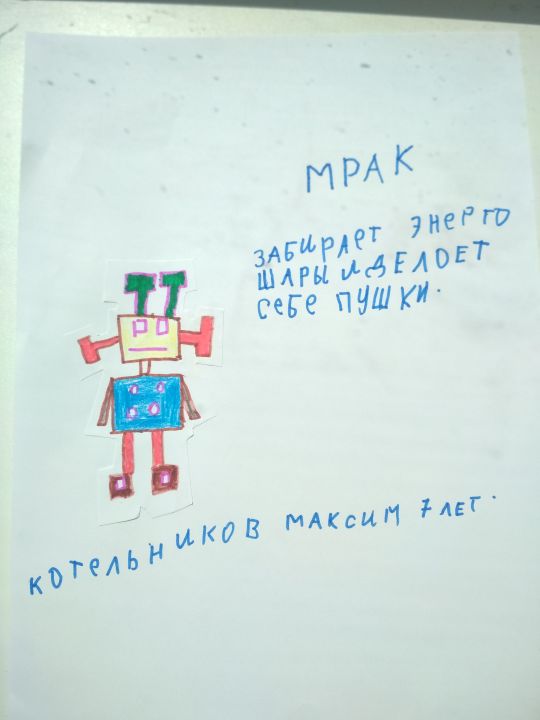 МРАК
ЗАБИРАЕТ ЭНЕРГО
ШАРЫ И ДЕЛОЕТ
СЕБЕ ПУШКИ.
КОТЕЛЬНИКОВ МАКСИМ 7 ЛЕТ.